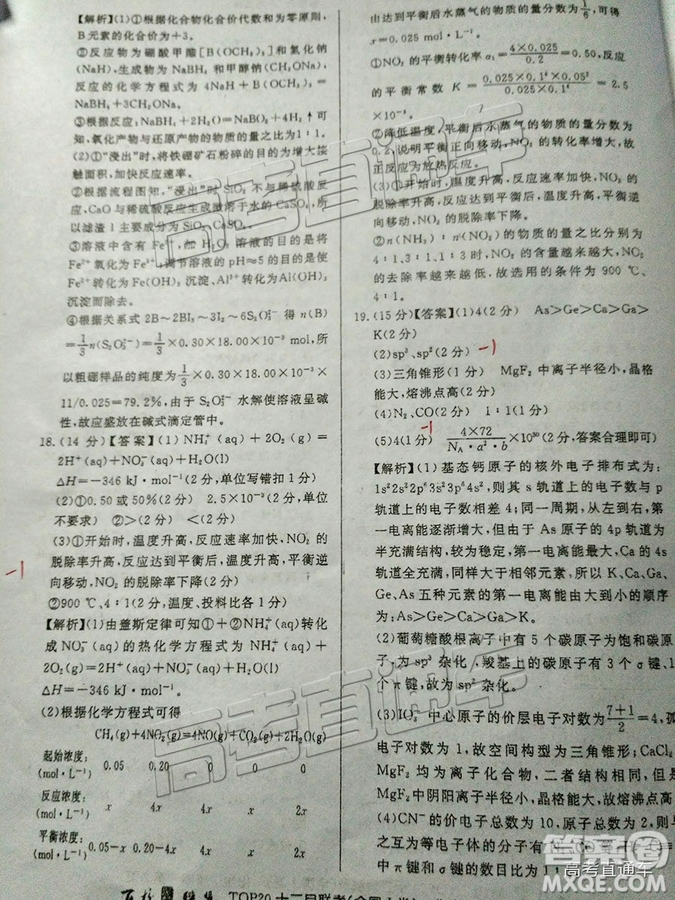 【解析】(1)①根据化合物化合价代数和为零原则，
B元素的化合价为+3。
②反应物为硼酸甲酯[B(OCH₃)₃]和氢化钠
(NaH)，生成物为NaBH₄和甲醇钠(CH₃ONa)，
反应的化学方程式为4NaH+B(OCH₃)₃=
NaBH₄+3CH₃ONa。
③根据反应：NaBH₄+2H₂O=NaBO₂+4H₂↑可
知，氧化产物与还原产物的物质的量之比为1∶1。
(2)①“浸出”时，将铁硼矿石粉碎的目的为增大接
触面积，加快反应速率。
②根据流程图知，“浸出”时SiO₂不与稀硫酸反
应，CaO与稀硫酸反应生成微溶于水的CaSO₄，所
以滤渣1主要成分为SiO₂、CaSO₄。
③溶液中含有Fe²⁺，加H₂O₂溶液的目的是将
Fe²⁺氧化为Fe³⁺，调节溶液的pH≈5的目的是使
Fe³⁺转化为Fe(OH)₃沉淀、Al³⁺转化为Al(OH)₃
沉淀而除去。
④根据关系式2B～2BI₃～3I₂～6S₂O₃²⁻得n(B)
=1/3n(S₂O₃²⁻)=1/3×0.30×18.00×10⁻³ mol，所
以粗硼样品的纯度为1/3×0.30×18.00×10⁻³×
11/0.025=79.2%，由于S₂O₃²⁻水解使溶液呈碱
性，故应盛放在碱式滴定管中。
18.(14分)【答案】(1)NH₄⁺(aq)+2O₂(g)=
2H⁺(aq)+NO₃⁻(aq)+H₂O(l)
△H=-346 kJ·mol⁻¹(2分，单位写错扣1分)
(2)①0.50或50%(2分) 2.5×10⁻³(2分，单位
不要求) ②>(2分) <(2分)
(3)①开始时，温度升高，反应速率加快，NO₂的
脱除率升高，反应达到平衡后，温度升高，平衡逆
向移动，NO₂的脱除率下降(2分)
-1
②900 ℃、4∶1(2分，温度、投料比各1分)
【解析】(1)由盖斯定律可知①+②NH₄⁺(aq)转化
成NO₃⁻(aq)的热化学方程式为NH₄⁺(aq)+
2O₂(g)=2H⁺(aq)+NO₃⁻(aq)+H₂O(l)
△H=-346 kJ·mol⁻¹。
(2)根据化学方程式可得
CH₄(g)+4NO₂(g)=4NO(g)+CO₂(g)+2H₂O(g)
起始浓度：
(mol·L⁻¹) 0.05 0.20 0 0 0
反应浓度：
(mol·L⁻¹) x 4x 4x x 2x
平衡浓度：
(mol·L⁻¹) 0.05-x 0.20-4x 4x x 2x
由达到平衡后水蒸气的物质的量分数为1/6，可得
x=0.025 mol·L⁻¹。
①NO₂的平衡转化率α₁=4×0.025/0.2=0.50，反应
的平衡常数K=0.025×0.1⁴×0.05²/0.025×0.1⁴=2.5
×10⁻³。
②降低温度，平衡后水蒸气的物质的量分数为
0.2，说明平衡正向移动，NO₂的转化率增大，故
正反应为放热反应。
(3)①开始时，温度升高，反应速率加快，NO₂的
脱除率升高，反应达到平衡后，温度升高，平衡逆
向移动，NO₂的脱除率下降。
②n(NH₃)∶n(NO₂)的物质的量之比分别为
4∶1、3∶1、1∶3时，NO₂的含量越来越大，NO₂
的去除率越来越低，故选用的条件为900 ℃、
4∶1。
19.(15分)【答案】(1)4(2分) As>Ge>Ca>Ga>
K(2分)
(2)sp³、sp²(2分) -1
(3)三角锥形(1分) MgF₂中离子半径小，晶格
能大，熔沸点高(2分)
(4)N₂、CO(2分)
-1
(5)4(1分) 4×72/N_A·a²·b×10³⁰(2分，答案合理即可)
【解析】(1)基态钙原子的核外电子排布式为：
1s²2s²2p⁶3s²3p⁶4s²，则其s轨道上的电子数与p
轨道上的电子数之比为2∶3，同一周期，从左到右，第
一电离能逐渐增大，但由于As原子的4p轨道为
半充满结构，较为稳定，第一电离能最大，Ca的4s
轨道全充满，同样大于相邻元素，所以K、Ca、Ga、
Ge、As五种元素的第一电离能由大到小的顺序
为：As>Ge>Ca>Ga>K。
(2)葡萄糖酸根离子中有5个碳原子为饱和碳原
子，为sp³杂化，羧基上的碳原子有3个σ键、1
个π键，故为sp²杂化。
(3)IO₃⁻中心原子的价层电子对数为7+1/2=4，孤
电子对数为1，故空间构型为三角锥形；CaCl₂
MgF₂均为离子化合物，二者结构相同，由于
MgF₂中阴阳离子半径小，晶格能大，故熔沸点高
(4)CN⁻的价电子总数为10，原子总数为2，与
之互为等电子体的分子
TOP20 十二月联考(全国
高考直通车
高考直通车
答案圈
MXQE.COM
高考直通车